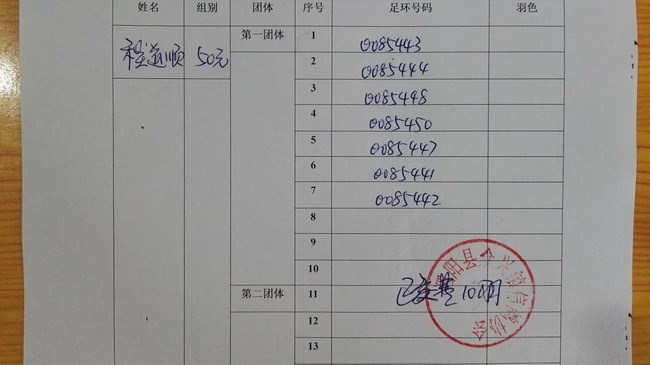 姓名 组别 团体 序号 足环号码 羽色
程道顺 50元 第一团体 1 0085443
2 0085444
3 0085448
4 0085450
5 0085447
6 0085441
7 0085442
8
9
10
第二团体 11 已交费100
12
13
阳县 信鸽协会